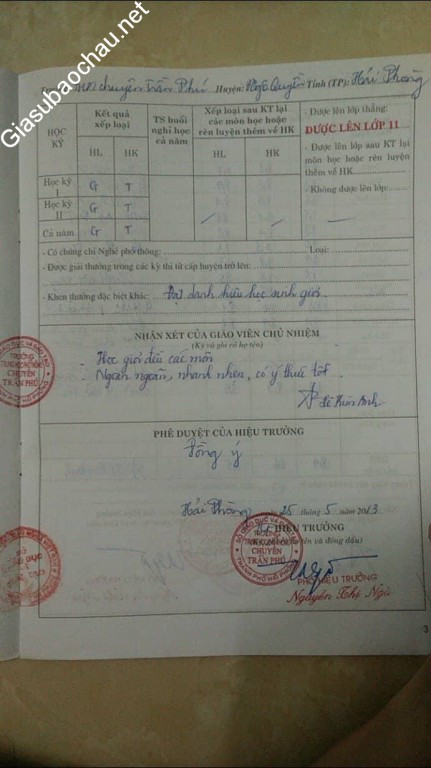 Giasubaochau.net
THPT chuyên Trần Phú Huyện: Ngô Quyền Tỉnh (TP): Hải Phòng
HỌC KỲ
Kết quả xếp loại
HL HK
TS buổi nghỉ học cả năm
Xếp loại sau KT lại các môn học hoặc rèn luyện thêm về HK
HL HK
- Được lên lớp thẳng:
ĐƯỢC LÊN LỚP 11
- Được lên lớp sau KT lại môn học hoặc rèn luyện thêm về HK:
- Không được lên lớp:
Học kỳ I G T
Học kỳ II G T
Cả năm G T
- Có chứng chỉ Nghề phổ thông: Loại:
- Được giải thưởng trong các kỳ thi từ cấp huyện trở lên:
- Khen thưởng đặc biệt khác: Đạt danh hiệu học sinh giỏi.
NHẬN XÉT CỦA GIÁO VIÊN CHỦ NHIỆM
(Ký và ghi rõ họ tên)
- Học giỏi đều các môn
- Ngoan ngoãn, nhanh nhẹn, có ý thức tốt.
PHÊ DUYỆT CỦA HIỆU TRƯỞNG
Đồng ý
Hải Phòng 25 tháng 5 năm 2013
HIỆU TRƯởNG
CHUYÊN
TRẦN PHÚ
PHÓ HIỆU TRƯỞNG
Nguyễn Thị Nga
TRƯỜNG
CHUYÊN
TRẦN PHÚ
3